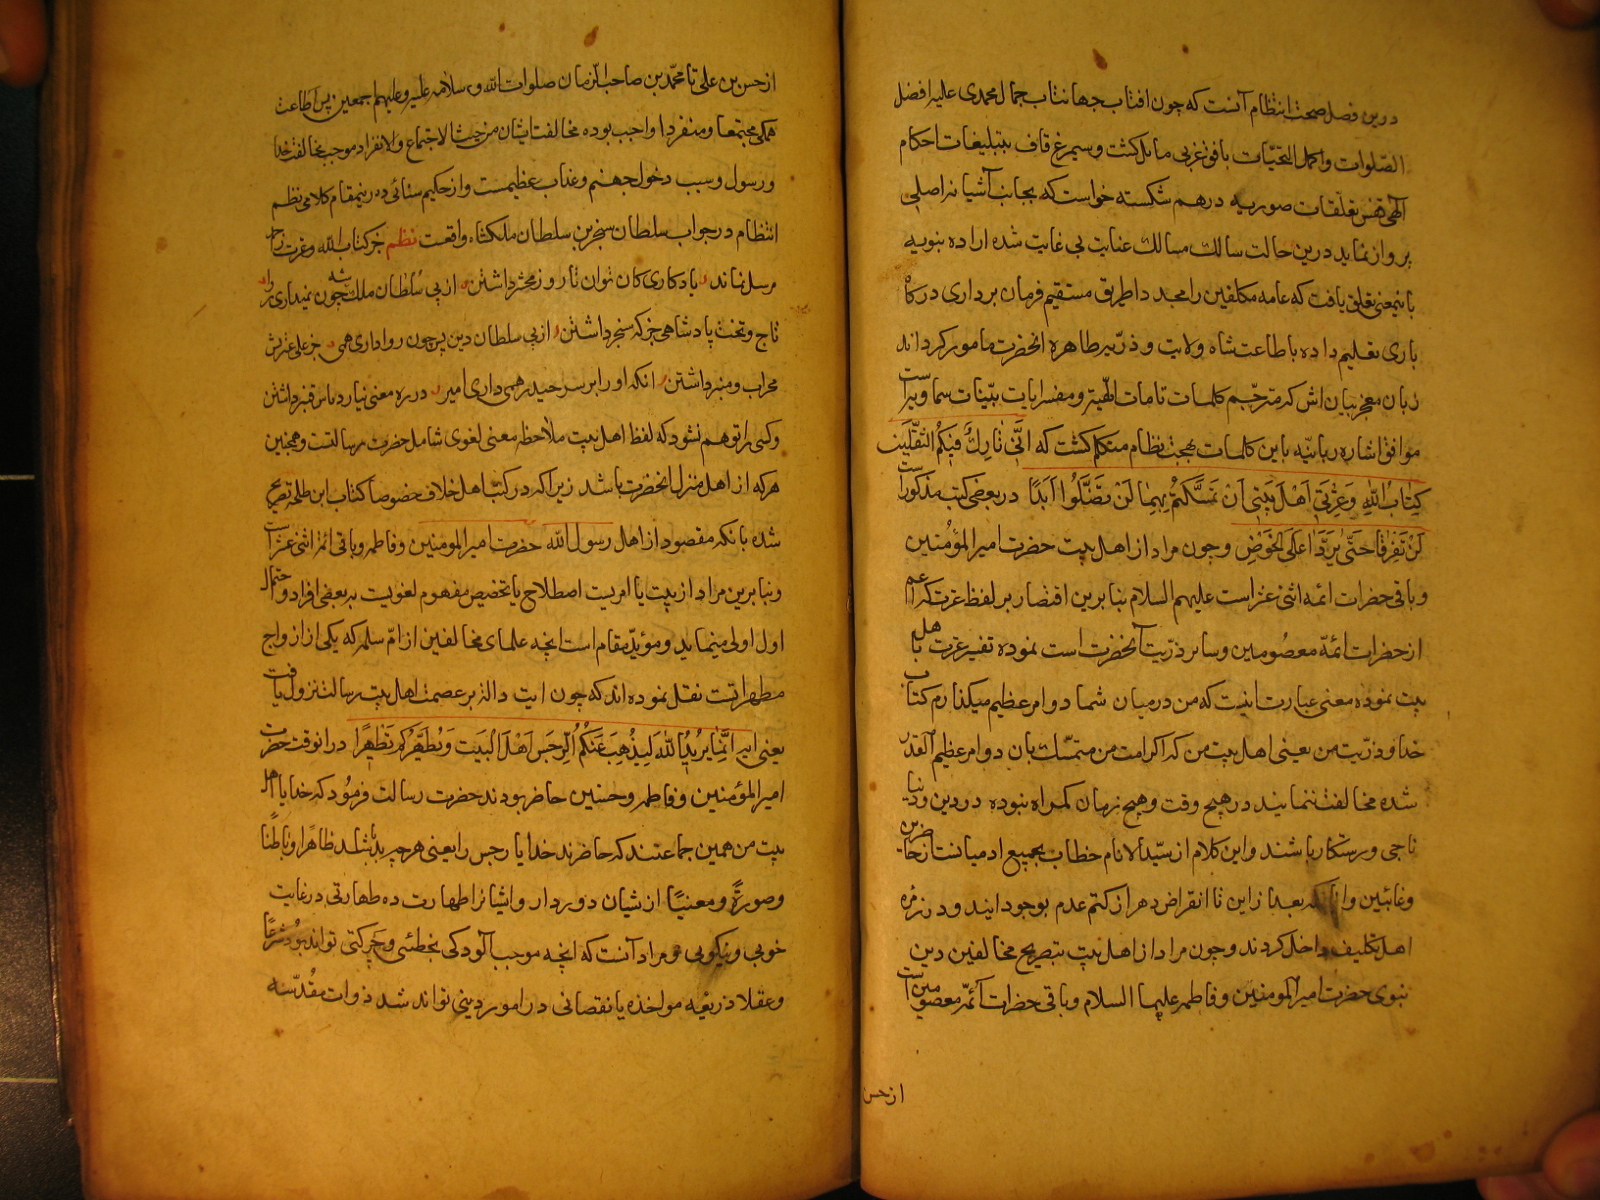 درین فصل صحت انتظام آنست که چون افتاب جهانتاب جمال محمدی علیه افضل
الصلوات واکمل التحیات بافق غربی مایل کشت وسیمرغ قاف بتبلیغات احکام
آلهی قفس تعلقات صوریه درهم شکسته خواست که بجانب آشیانه اصلی
پرواز نماید درین حالت سالک مسالک عنایت بی غایت شده اراده نبویه
باینمعنی تعلق یافت که عامه مکلفین را مجددا طریق مستقیم فرمان برداری درکاه
باری تعلیم داده باطاعت شاه ولایت و ذریه طاهره انحضرت مامور کرداند
زبان معجز بیان اش که مترجم کلمات تامات الهیه و مفسر ایات بینات سماویه است
موافق اشاره ربانیه باین کلمات بهجت نظام متکلم کشت که انی تارک فیکم الثقلین
کتاب الله وعترتی اهل بیتی ان تمسکتم بهما لن تضلوا ابدا در بعضی کتب مذکور است
لن تفرقا حتی یردا علی الحوض وچون مراد از اهل بیت حضرت امیر المؤمنین
وباقی حضرات ائمه اثنی عشر است علیهم السلام بنابرین اقتصار بر لفظ عترت که اعم
از حضرات ائمه معصومین وسایر ذریت آنحضرت است نموده تفسیر عترت باهل
بیت نموده معنی عبارت اینست که من درمیان شما دو امر عظیم میکذارم کتاب
خدا وذریت من یعنی اهل بیت من که اکر امت من متمسک بان دو امر عظیم القدر
شده مخالفت ننمایند در هیچ وقت وهیچ زمان کمراه نبوده در دین ودنیا
ناجی ورستکار باشند واین کلام از سید الانام خطاب بجمیع ادمیانست از حاضرین
وغائبین بعد از این تا انقراض دهر از کتم عدم بوجود ایند ودر زمره
اهل تکلیف داخل کردند وچون مراد از اهل بیت بتصریح مخالفین دین
نبوی حضرت امیر المومنین وفاطمه علیها السلام وباقی حضرات ائمه معصومین است
از حسن
از حسن بن علی تا محمد بن صاحب الزمان صلوات الله وسلامه علیه وعلیهم اجمعین پس اطاعت
همکی مجتمعا ومنفردا واجب بوده مخالفت ایشان من حیث الاجتماع والانفراد موجب مخالفت خدا
ورسول وسبب دخول جهنم وعذاب عظیمست واز حکیم سنائی درینمقام کلامی نظم
انتظام در جواب سلطان سنجر بن سلطان ملکشاه واقعست نظم جز کتاب الله وعترت ز احمد
مرسل نماند یادکاری کان توان تا روز محشر داشتن از پی سلطان ملکشه چون نمیداری روا
تاج وتخت پادشاهی جز که سنجر داشتن از پی سلطان دین پس چون روا داری همی جز علی وعترتش
محراب ومنبر داشتن انکه او را بر سر حیدر همی داری امیر در ره معنی نیارد پاس قنبر داشتن
وکسی را توهم نشود که لفظ اهل بیت ملاحظه معنی لغوی شامل حضرت رسالتست وهمچنین
هر که از اهل منزل انحضرت باشد زیرا که در کتب اهل خلاف خصوصا کتاب ابن طلحه تصریح
شده بانکه مقصود از اهل رسول الله حضرت امیر المومنین وفاطمه وباقی ائمه اثنی عشر است
وبنابرین مراد از بیت یا امریست اصطلاح یا تخصیص مفهوم لغویست به بعضی افراد واحتمال
اول اولی مینماید ومؤید مقام است انچه علمای مخالفین از ام سلمه که یکی از ازواج
مطهراتست نقل نموده اند که چون ایت دالة بر عصمت اهل بیت رسالت نزول یافت
یعنی ایه انما یرید الله لیذهب عنکم الرجس اهل البیت ویطهرکم تطهیرا در انوقت حضرت
امیر المؤمنین وفاطمه وحسنین حاضر بودند حضرت رسالت فرمود که خدایا اهل
بیت من همین جماعتند که حاضرند خدایا رجس را یعنی هر چه بد باشد ظاهرا وباطنا
وصورة ومعنیا از شیان دور دار وایشانرا طهارت ده طهارتی در غایت
خوبی ونیکویی ومراد آنست که انچه موجب آلودکی بخطئی وحرکتی تواند بود شرعا
وعقلا ذریعه مواخذه یا نقصانی در امور دینی تواند شد ذوات مقدسه